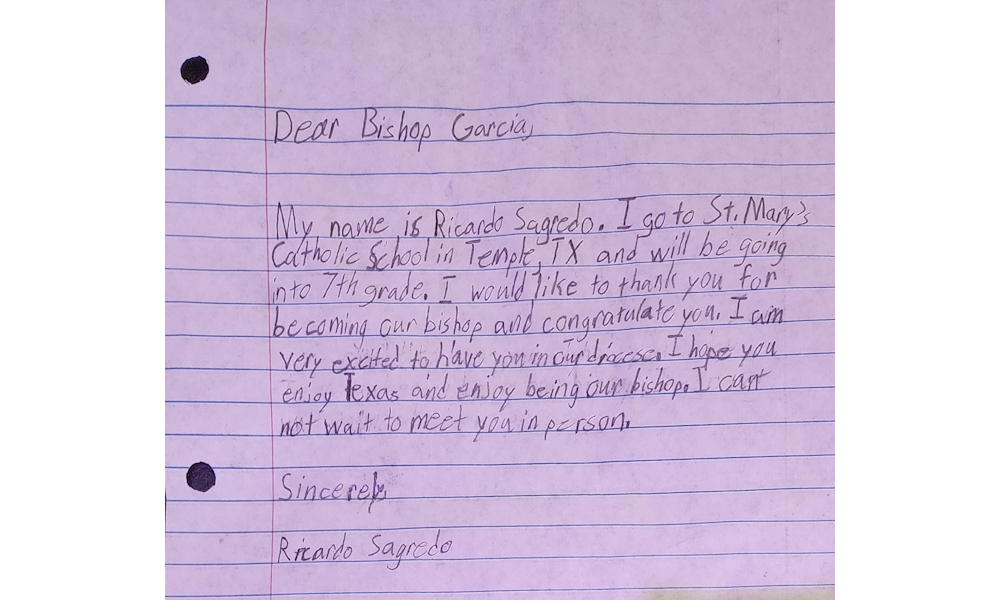 Dear Bishop Garcia,
My name is Ricardo Sagredo. I go to St. Mary's
Catholic School in Temple, TX and will be going
into 7th grade. I would like to thank you for
becoming our bishop and congratulate you. I am
very excited to have you in our diocese. I hope you
enjoy Texas and enjoy being our bishop. I can
not wait to meet you in person.
Sincerely,
Ricardo Sagredo